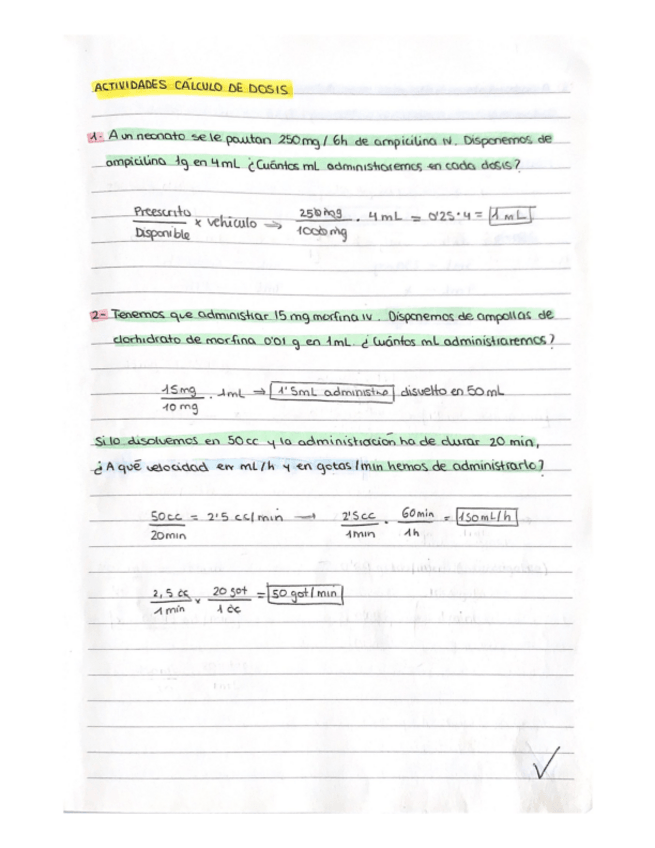 ACTIVIDADES CÁLCULO DE DOSIS
1- A un neonato se le pautan 250mg / 6h de ampicilina IV. Disponemos de
ampicilina 1g en 4mL ¿Cuántos mL administraremos en cada dosis?
Preescrito / Disponible x vehículo → 250mg / 1000mg · 4mL = 0'25·4 = 1mL
2- Tenemos que administrar 15 mg morfina IV. Disponemos de ampollas de
clorhidrato de morfina 0'01 g en 1mL. ¿Cuántos mL administraremos?
15mg / 10mg · 1mL → 1'5mL administro disuelto en 50mL
Si lo disolvemos en 50cc y la administración ha de durar 20 min,
¿A qué velocidad en mL/h y en gotas/min hemos de administrarlo?
50cc / 20min = 2'5 cc/min → 2'5cc / 1min · 60min / 1h = 150mL/h
2,5 cc / 1 min x 20 got / 1 cc = 50 got/min